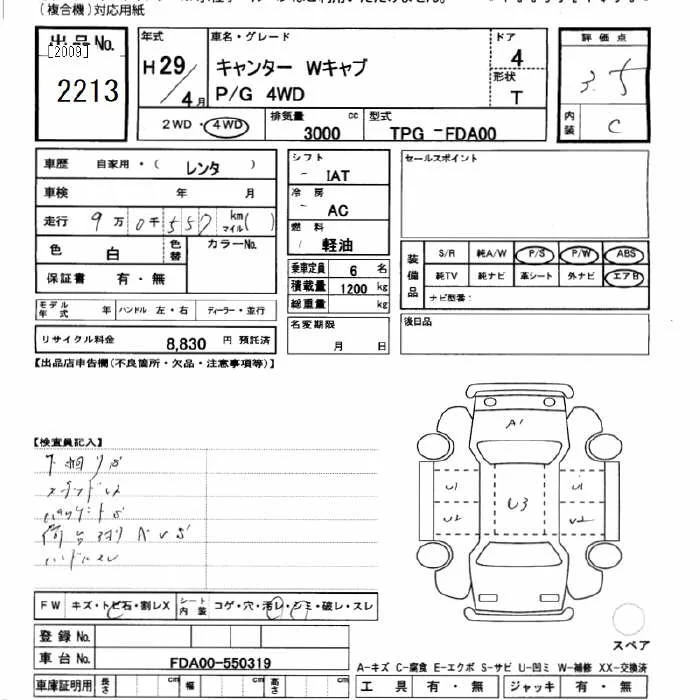 (複合機)対応用紙
出品No.
[2009]
2213
年式
H29/4月
車名・グレード
キャンター Wキャブ
P/G 4WD
ドア
4
形状
T
評価点
3.5
内装
C
2WD・4WD
排気量
3000 cc
型式
TPG -FDA00
車歴 自家用・( レンタ )
車検 年 月
走行 9万0千557 km マイル( )
色 白 色替 カラーNo.
保証書 有・無
モデル年式 年 ハンドル 左・右 ディーラー・並行
リサイクル料金 8,830 円 預託済
シフト
IAT
冷房
AC
燃料
軽油
乗車定員 6 名
積載量 1200 kg
総重量 kg
名変期限
月 日
セールスポイント
装備品
S/R 純A/W P/S P/W ABS
純TV 純ナビ 革シート 外ナビ エアB
ナビ型番:
後日品
【出品店申告欄(不良箇所・欠品・注意事項等)】
【検査員記入】
A1
U1 U1
U3
U2 U2
FW キズ・トビ石・割レX シート内装 コゲ・穴・汚レ・シミ・破レ・スレ
登録No.
車台No. FDA00-550319
車庫証明用 長さ cm 幅 cm 高さ cm
スペア
A-キズ C-腐食 E-エクボ S-サビ U-凹ミ W-補修 XX-交換済
工具 有・無 ジャッキ 有・無